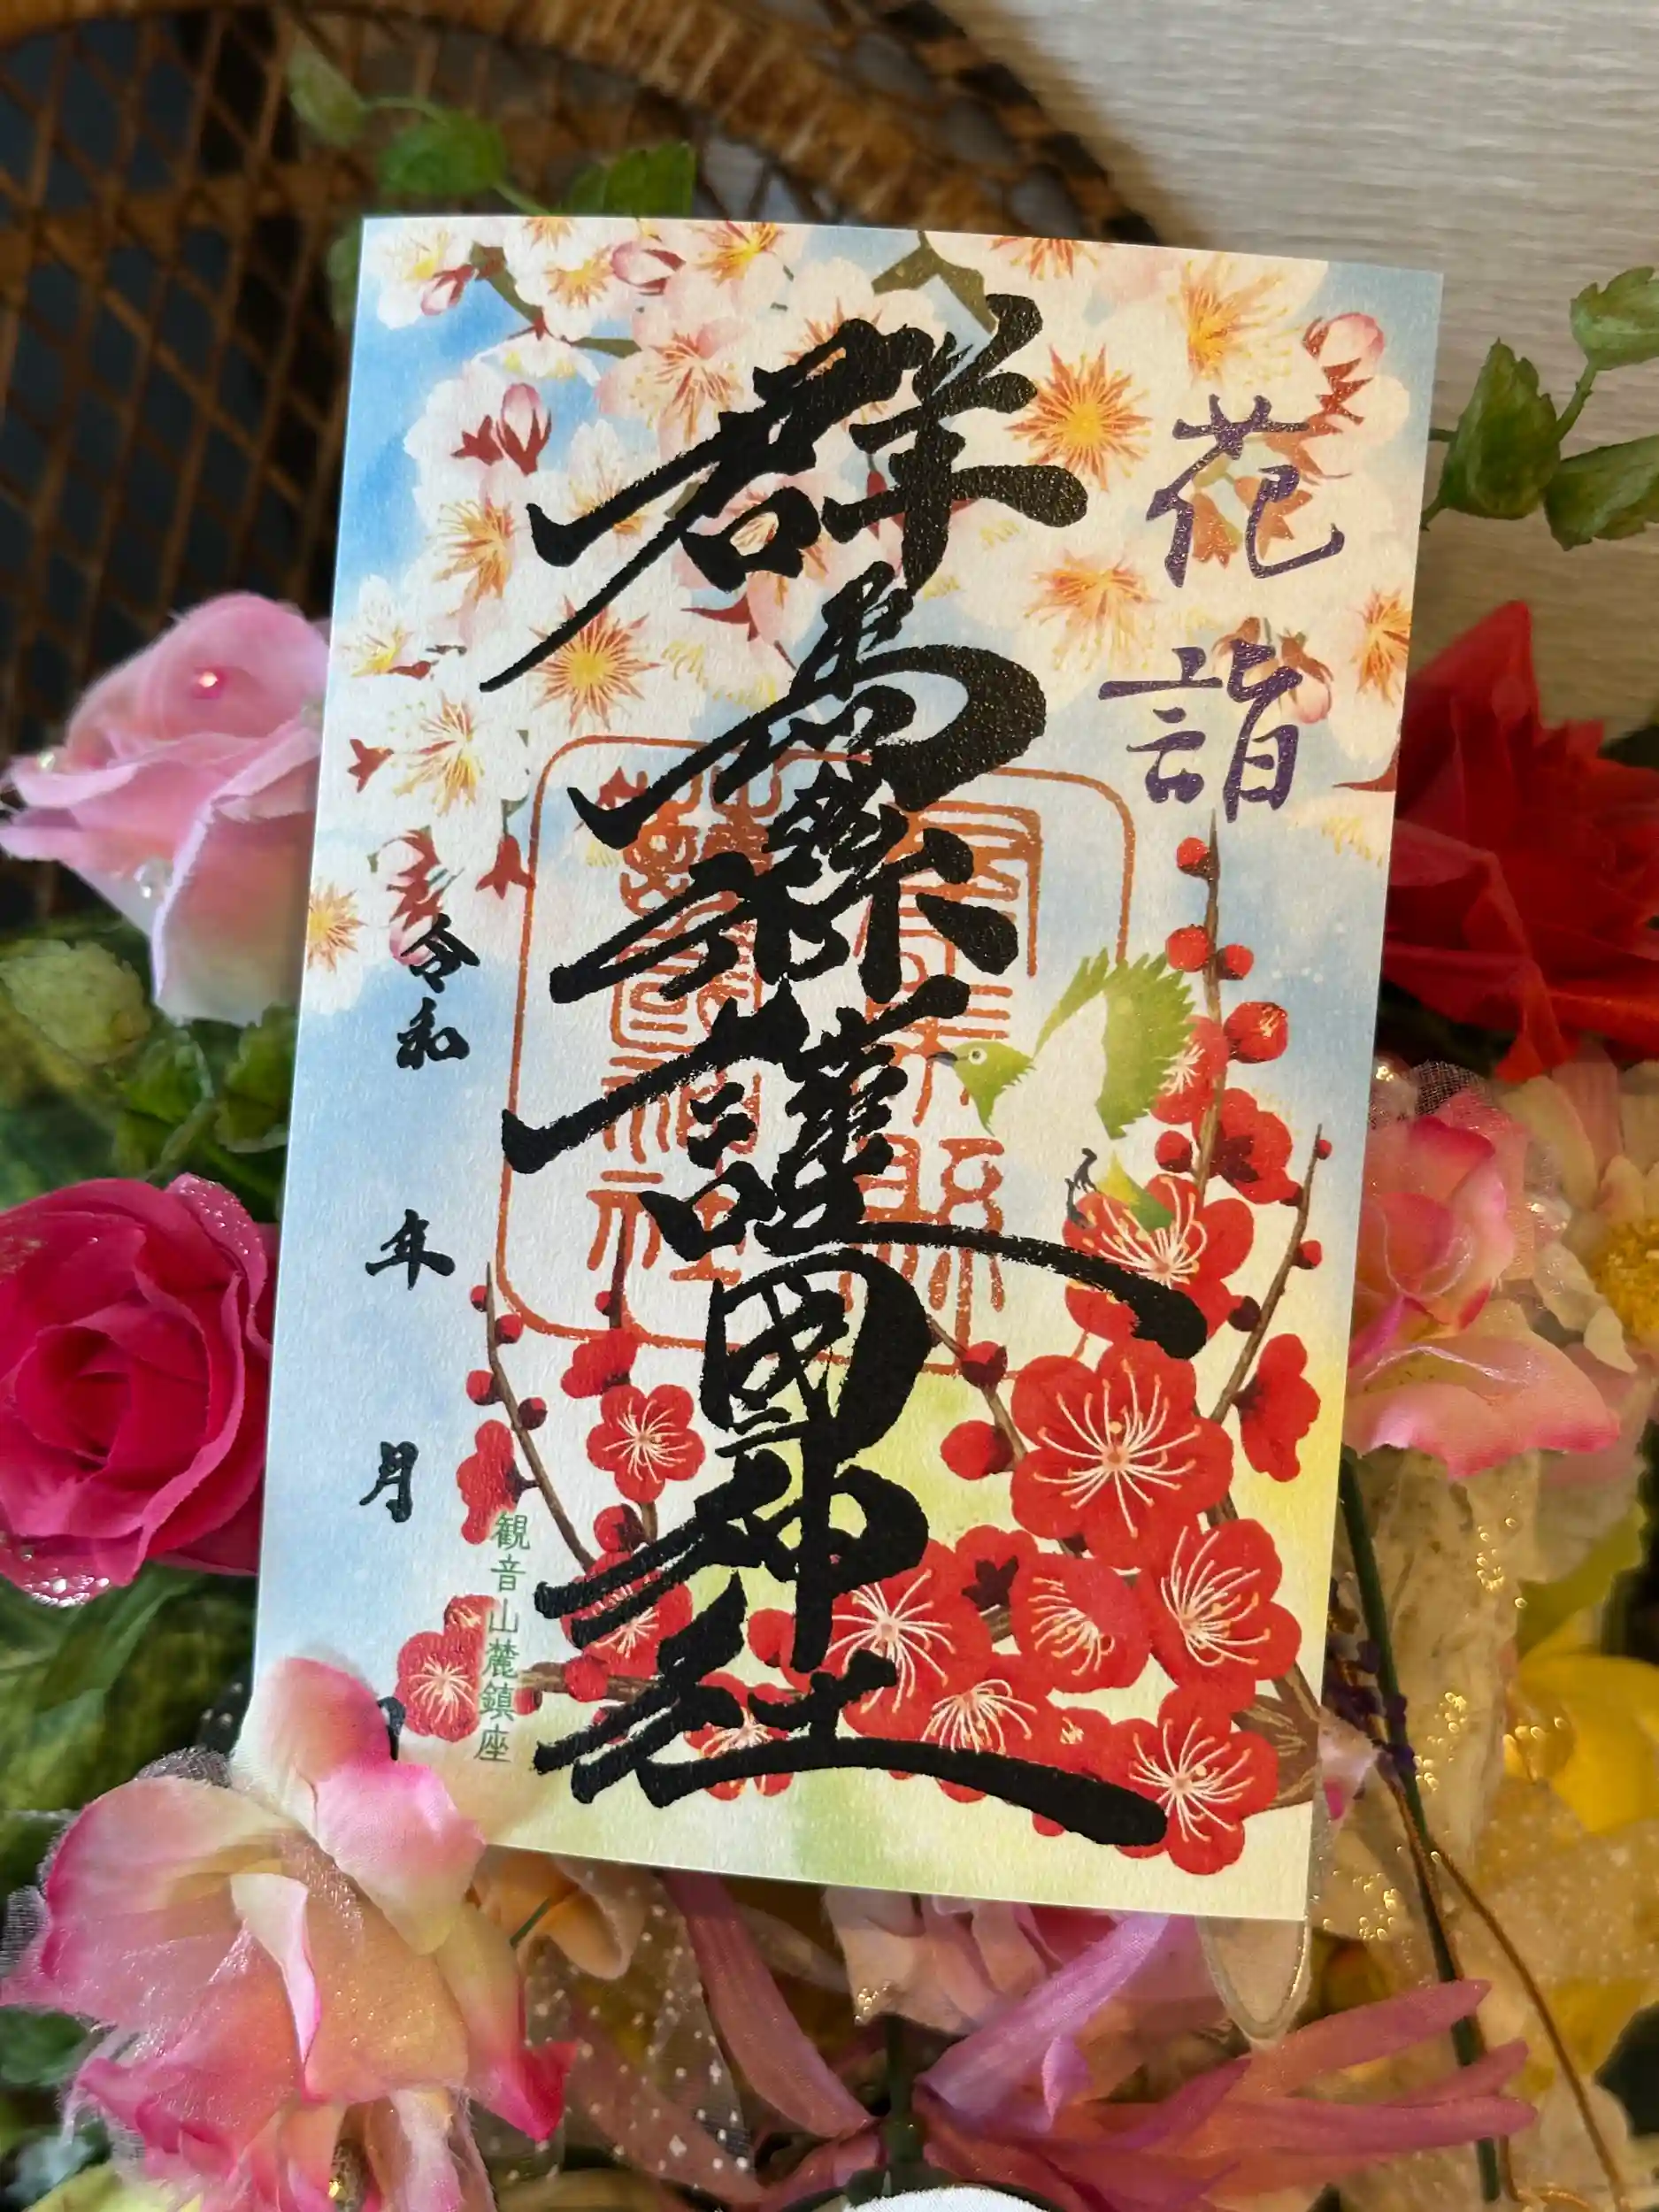 花詣
群馬縣護國神社
観音山麓鎮座
令和 年 月